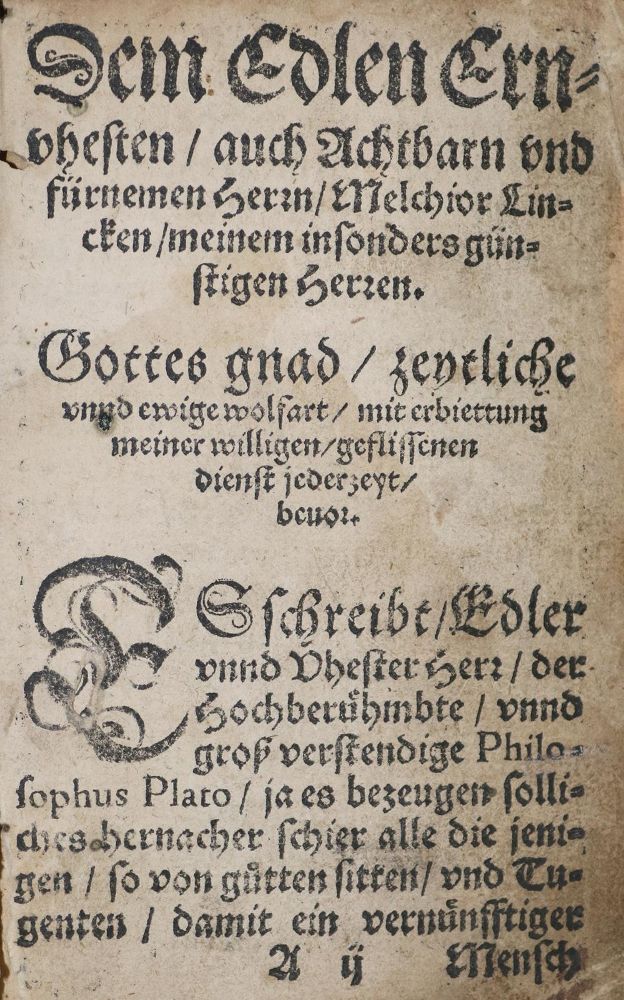 Dem Edlen Ern⸗
vhesten / auch Achtbarn vnd
fürnemen Herrn / Melchior Lin⸗
cken / meinem insonders gün⸗
stigen Herren.
Gottes gnad / zeytliche
vnnd ewige wolfart / mit erbiettung
meiner willigen / geflissenen
dienst jederzeyt /
beuor.
ES schreibt / Edler
vnnd Vhester Herr / der
Hochberühmbte / vnnd
groß verstendige Philo⸗
sophus Plato / ja es bezeugen solli⸗
ches hernacher schier alle die jeni⸗
gen / so von gůtten sitten / vnd Tu⸗
genten / damit ein vernünfftiger
A ij Mensch